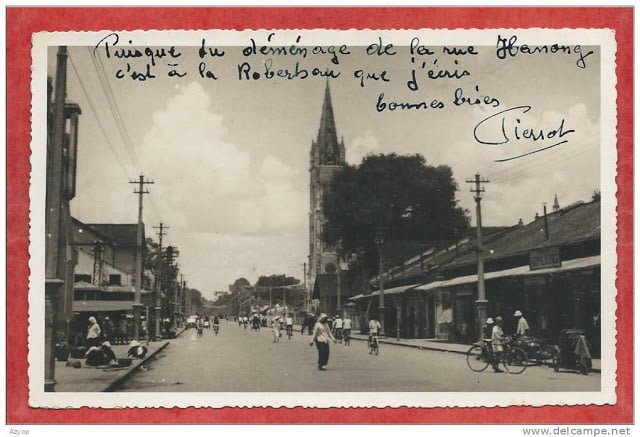 Puisque du déménage de la rue Hanong
c'est à la Robertsau que j'écris
bonnes bises
Pierrot
Azyop
www.delcampe.net